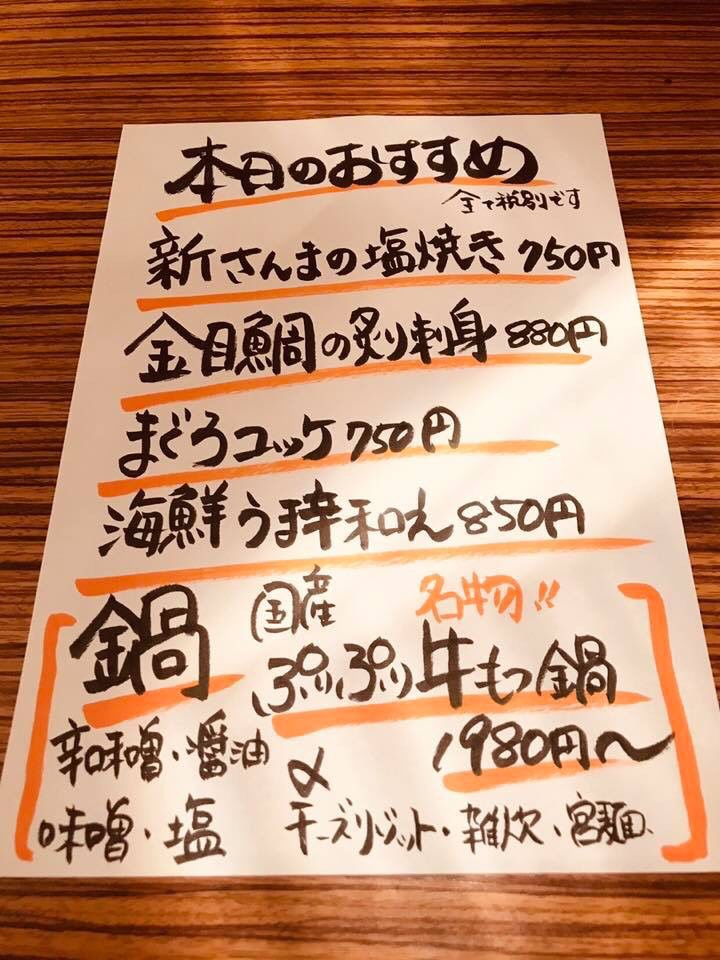 本日のおすすめ
全て税別です
新さんまの塩焼き 750円
金目鯛の炙り刺身 880円
まぐろユッケ 750円
海鮮うま辛和え 850円
鍋
国産 名物!!
ぷりぷり牛もつ鍋
1980円〜
辛味噌・醤油
味噌・塩
〆
チーズリゾット・雑炊・宮麺